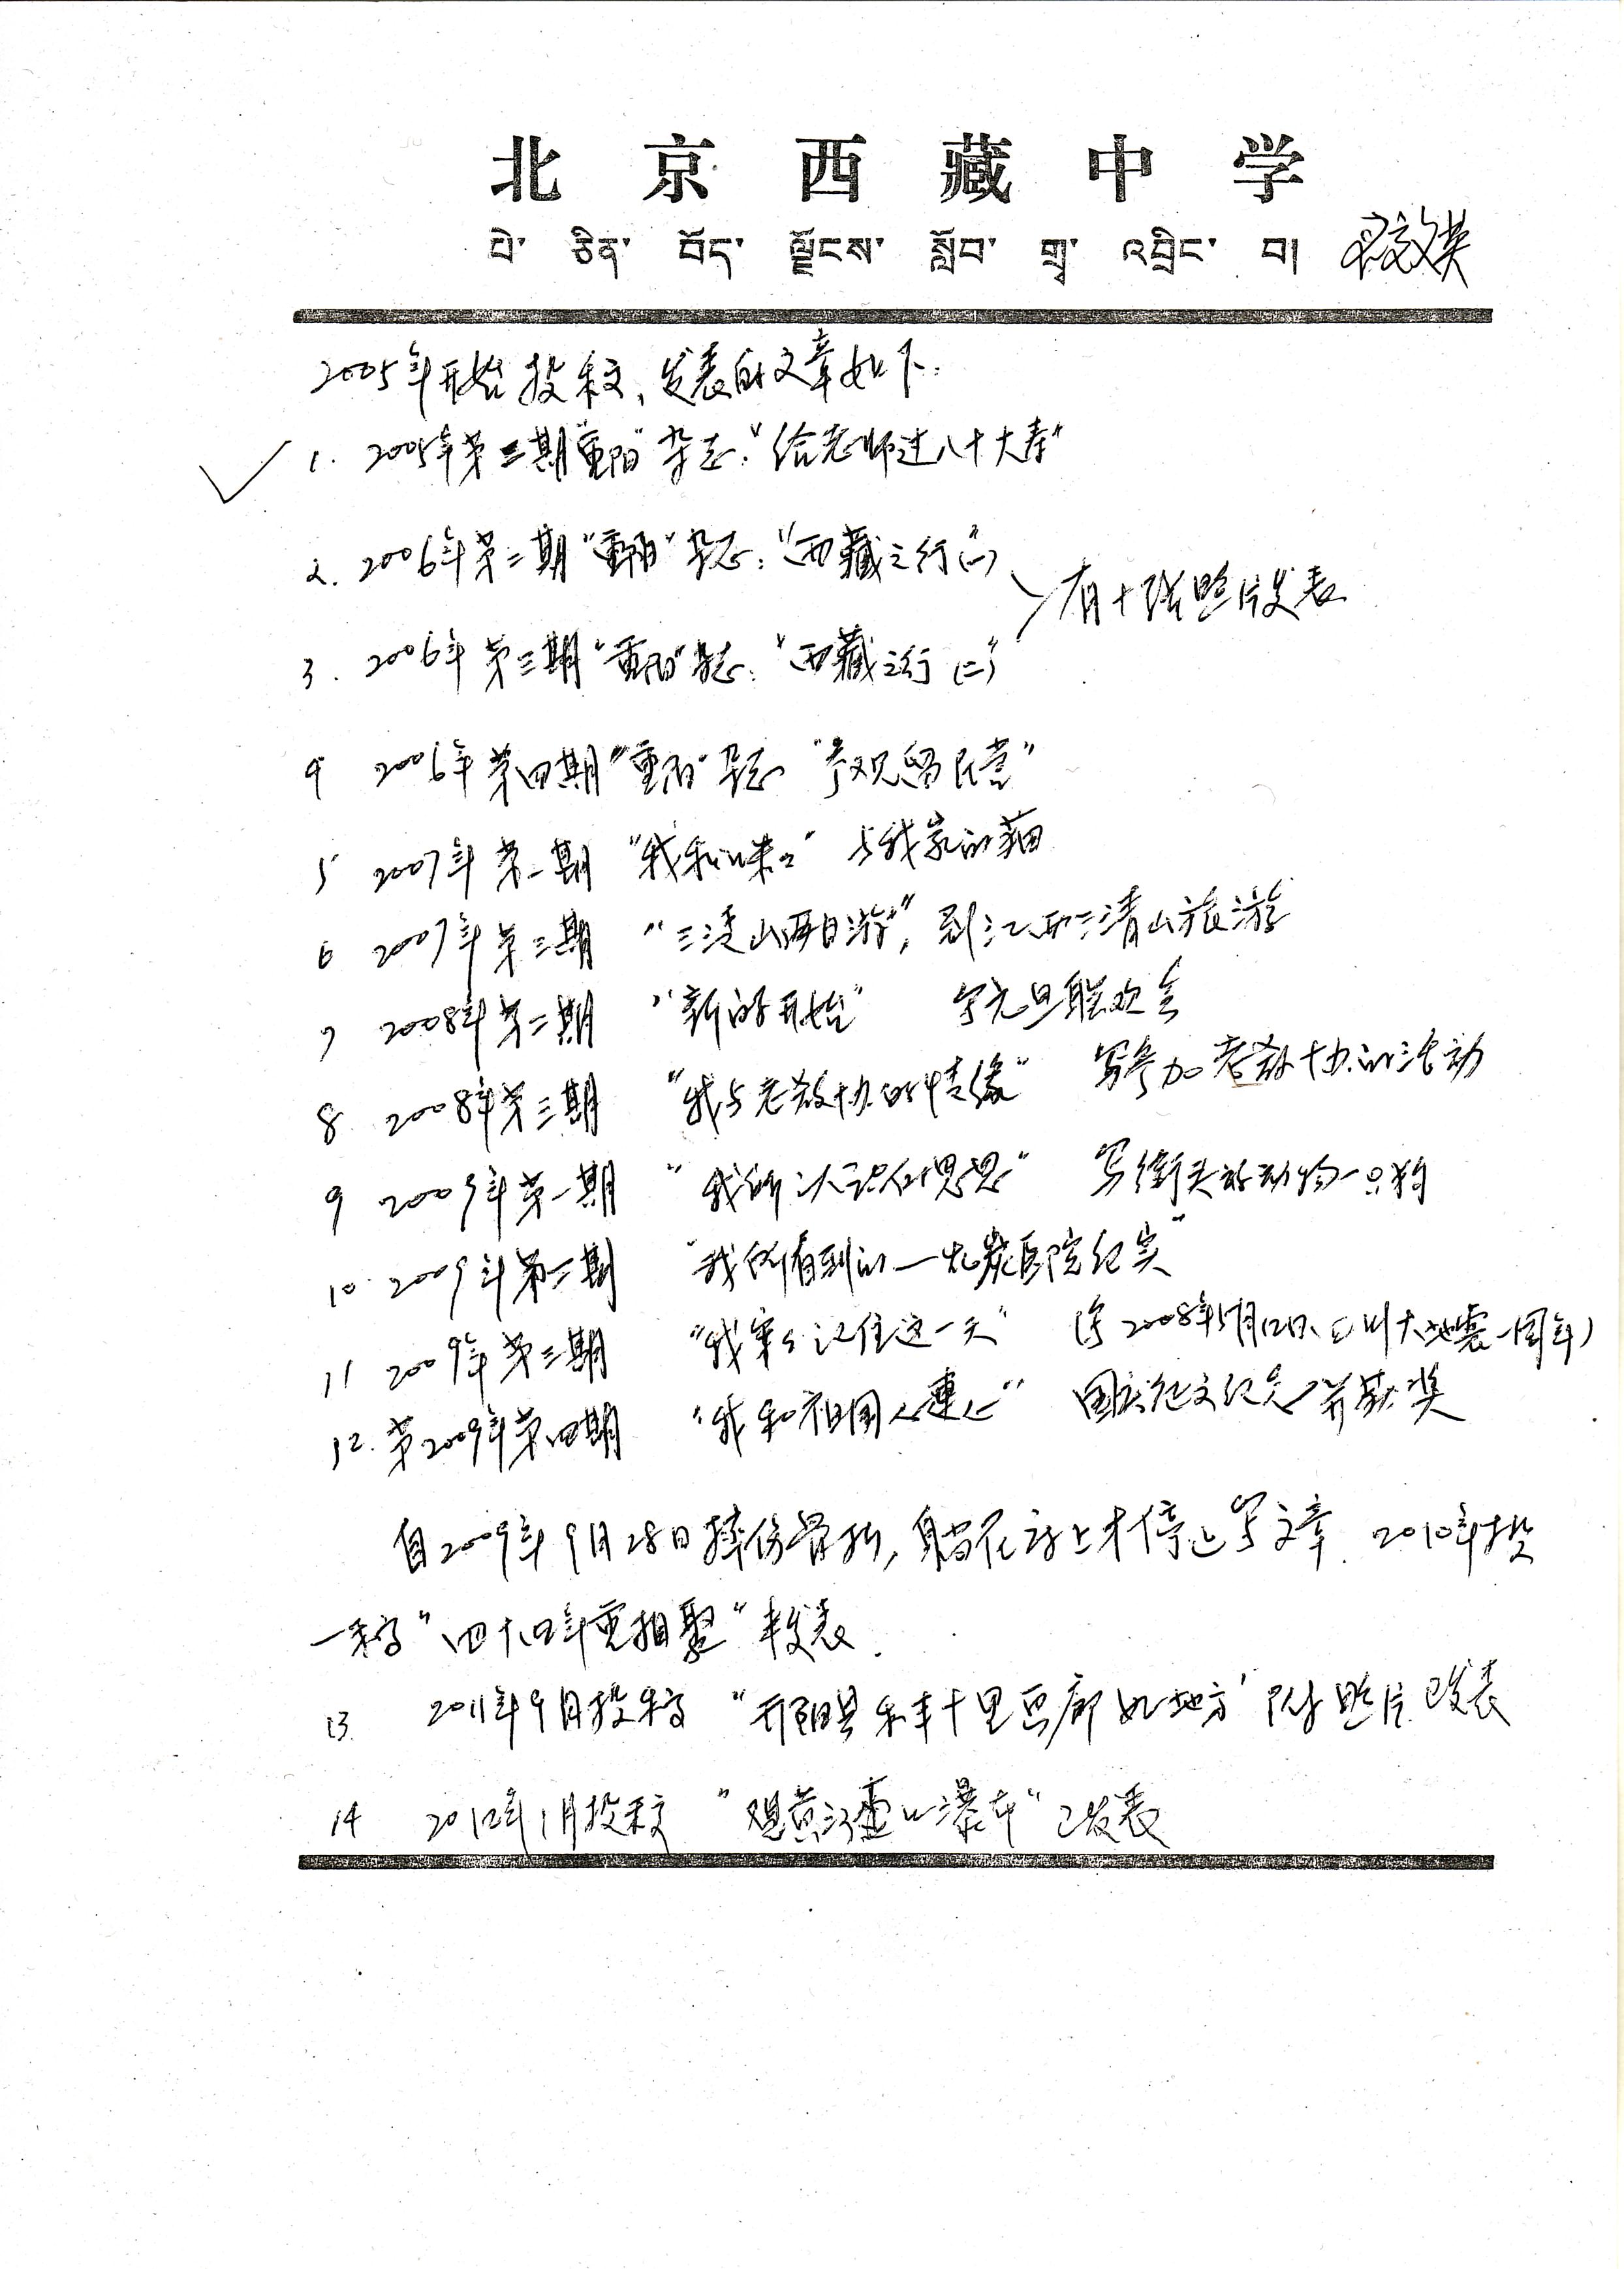 北京西藏中学
པེ་ ཅིན་ བོད་ ལྗོངས་ སློབ་ གྲྭ་ འབྲིང་ བ།
2005年开始投稿、发表的文章如下:
1. 2005年第三期"重阳"杂志:"给老师过八十大寿"
2. 2006年第二期"重阳"杂志:"西藏之行(一)
有十张照片发表
3. 2006年第三期"重阳"杂志:"西藏之行(二)"
4 2006年第四期"重阳"杂志 "参观留民营"
5 2007年第一期 "我和咪咪" 与我家的猫
6 2007年第三期 "三清山两日游", 到江西三清山旅游
7 2008年第二期 "新的开始" 写元旦联欢会
8. 2008年第三期 "我与老教协的情缘" 写参加老教协的活动
9 2009年第一期 "我所认识的思思" 写街头的动物一只狗
10. 2009年第二期 "我所看到的一九八医院纪实"
11 2009年第三期 "我牢牢记住这一天" (写2008年5月12日、四川大地震一周年)
12. 第2009年第四期 "我和祖国心连心" 国庆征文纪念并获奖
自2009年9月28日摔伤骨折,躺在床上才停止写文章. 2010年投
一稿"四十四年重相聚"未发表.
13. 2011年9月投稿 "乐丰十里画廊好地方"附照片已发表
14 2012年1月投稿 "观黄河壶口瀑布"已发表